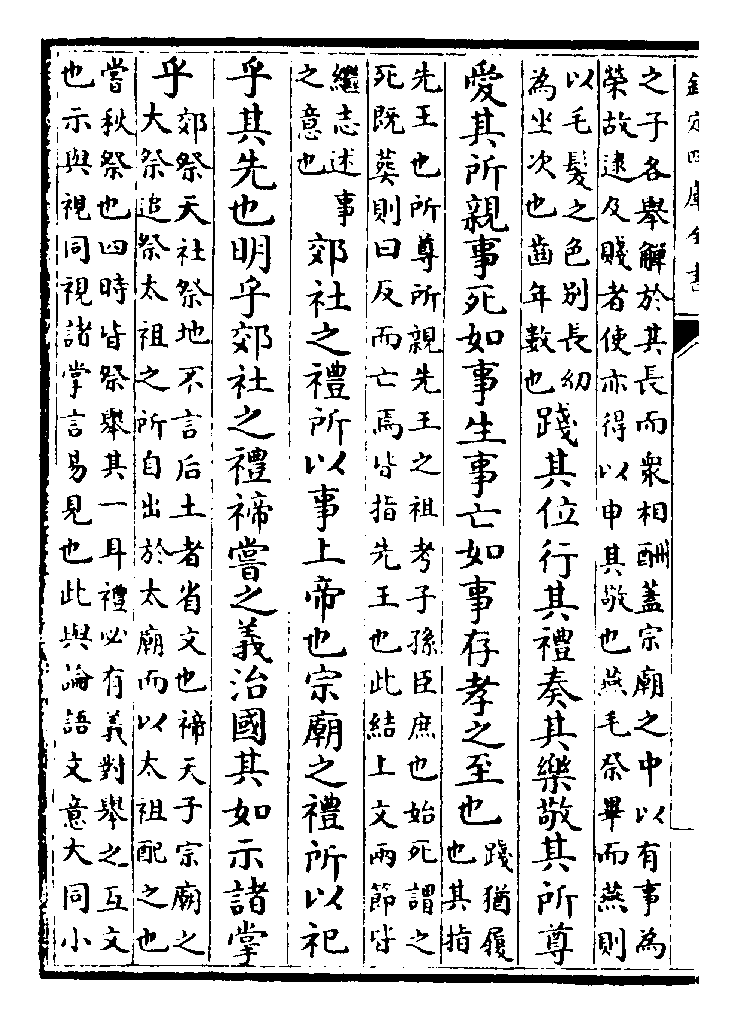 欽定四庫全書
之子各舉觶於其長而衆相酬蓋宗廟之中以有事為
榮故逮及賤者使亦得以申其敬也燕毛祭畢而燕則
以毛髮之色别長幼
為坐次也齒年數也
踐其位行其禮奏其樂敬其所尊
愛其所親事死如事生事亡如事存孝之至也
踐猶履
也其指
先王也所尊所親先王之祖考子孫臣庶也始死謂之
死既葬則曰反而亡焉皆指先王也此結上文兩節皆
繼志述事
之意也
郊社之禮所以事上帝也宗廟之禮所以祀
乎其先也明乎郊社之禮禘嘗之義治國其如示諸掌
乎
郊祭天社祭地不言后土者省文也禘天子宗廟之
大祭追祭太祖之所自出於太廟而以太祖配之也
嘗秋祭也四時皆祭舉其一耳禮必有義對舉之互文
也示與視同視諸掌言易見也此與論語文意大同小